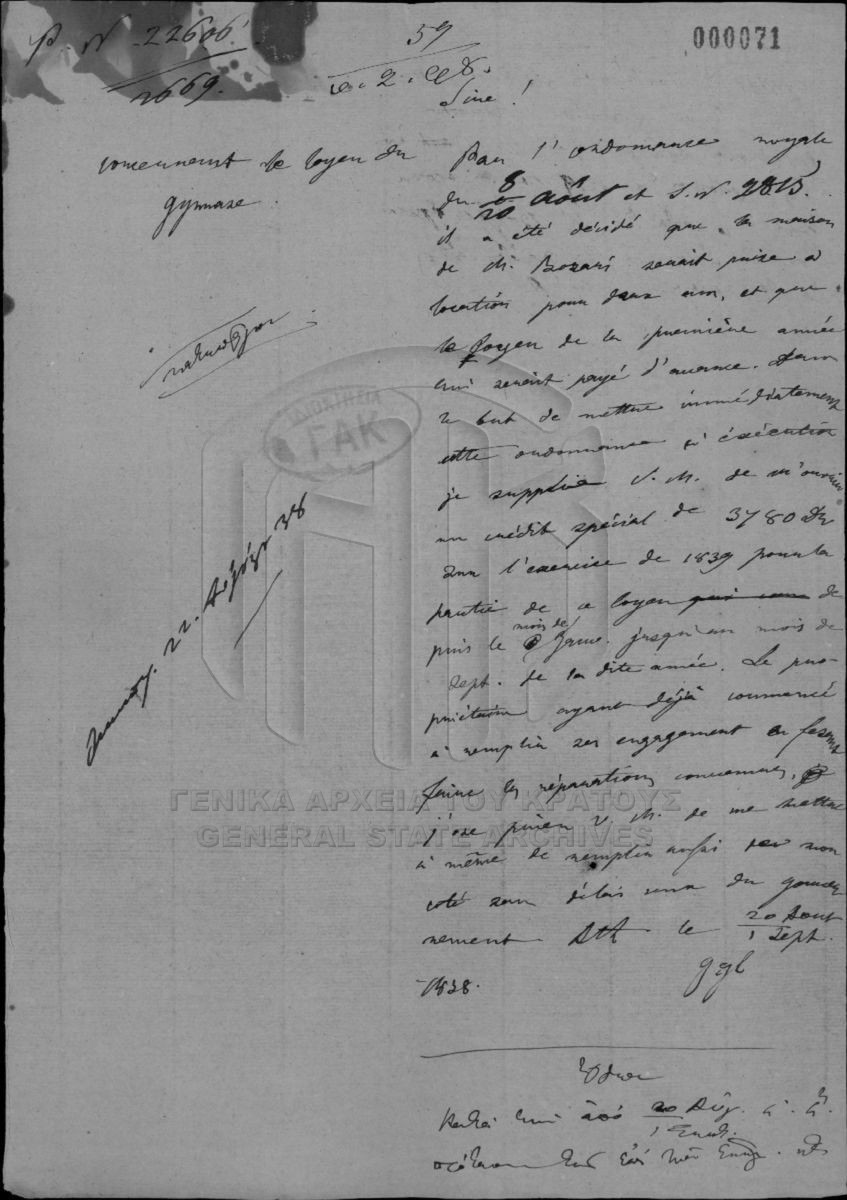 P. N. 22606.
2669.
59
e. 2. 98.
000071
Sire!
concernant le loyer du
gymnase.
Par l'ordonnance royale
du 8/20 Août et S. N. 2815.
il a été décidé que la maison
de M. Bozari serait prise à
location pour deux ans, et que
le loyer de la première année
lui serait payé d'avance. Dans
le but de mettre immédiatement
cette ordonnance à exécution
je supplie V. M. de m'ouvrir
un crédit spécial de 3780 Dr
sur l'exercise de 1839 pour la
partie de ce loyer de
puis le mois de Janv. jusqu'au mois de
Sept. de la dite année. Le pro-
priétaire ayant déjà commencé
à remplir ses engagement en fesant
faire les réparations convenues,
j'ose prier V. M. de me mettre
à même de remplir aussi de mon
coté sans délais ceux du gouver
nement Ath. le 20 Aout
1 Sept.
1838.
ggl
22. 38
ΙΔΙΟΚΤΗΣΙΑ
ΓΑΚ
ΓΕΝΙΚΑ ΑΡΧΕΙΑ ΤΟΥ ΚΡΑΤΟΥΣ
GENERAL STATE ARCHIVES
ἀπό 20 Αὐγ.
1 Σεπτ.